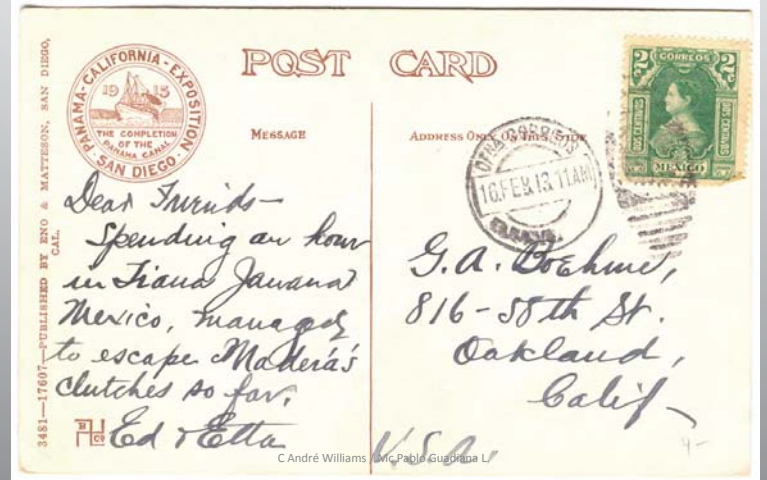 3481—17607—PUBLISHED BY ENO & MATTESON, SAN DIEGO, CAL.
PANAMA-CALIFORNIA-EXPOSITION
1915
THE COMPLETION
OF THE
PANAMA CANAL
SAN DIEGO
POST CARD
MESSAGE
ADDRESS ONLY ON THIS SIDE
2 CORREOS 2
DOS CENTAVOS
DOS CENTAVOS
MEXICO
CORREOS
16.FEB.13.11AM
Dear Friends—
Spending an hour
in Tiana Januana
Mexico, managed
to escape Madera's
clutches so far.
Ed & Etta
G. A. Boehme,
816-58th St.
Oakland,
Calif
U.S.A.
4-
C André Williams / Mc Pablo Guadiana L